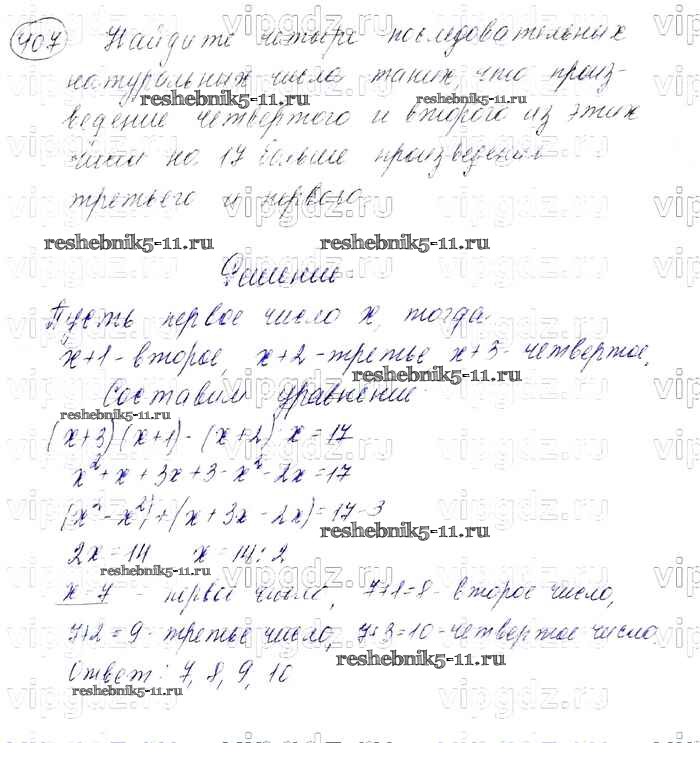 407 Найдите четыре последовательных
натуральных числа таких, что произ-
reshebnik5-11.ru reshebnik5-11.ru
ведение четвертого и второго из этих
чисел на 17 больше произведения
третьего и первого
vipgdz.ru
reshebnik5-11.ru reshebnik5-11.ru
Решение
Пусть первое число x, тогда
x+1 - второе, x+2 - третье x+3 - четвертое,
reshebnik5-11.ru
Составим уравнение
reshebnik5-11.ru
(x+3)(x+1) - (x+2) x = 17
x²+x+3x+3-x²-2x=17
(x²-x²)+(x+3x-2x)=17-3
reshebnik5-11.ru
2x=14 x=14:2
reshebnik5-11.ru
x=7 - первое число, 7+1=8 - второе число,
7+2=9 - третье число, 7+3=10 - четвертое число
reshebnik5-11.ru
Ответ: 7, 8, 9, 10
reshebnik5-11.ru
vipgdz.ru
reshebnik5-11.ru reshebnik5-11.ru